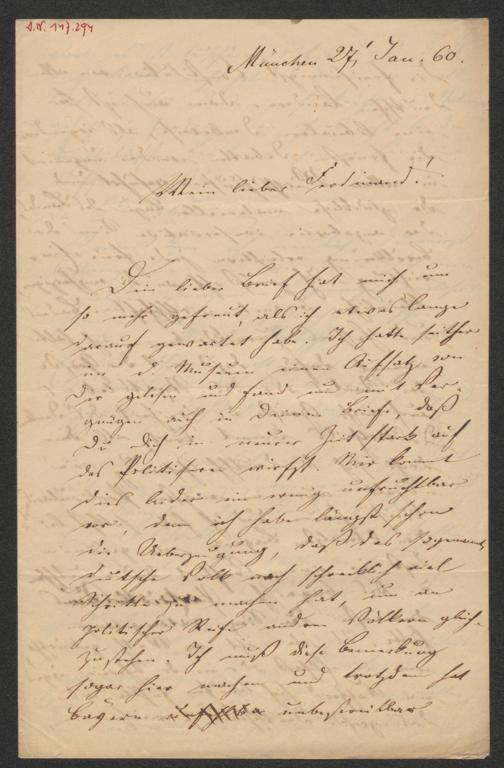 J.N. 147.294
München 27/ Jan. 60.
Mein lieber Ferdinand!
Dein lieber Brief hat mich um
so mehr gefreut, als ich etwas lange
darauf gewartet habe. Ich hatte seither
im d. Museum einen Aufsatz von
Dir gelesen und fand nun mit Ver-
gnügen auch in Deinem Briefe, daß
Du Dich in neurer Zeit stark auf
das Politisiren wirfst. Mir kommt
dies leider ein wenig unfruchtbar
vor, denn ich habe längst schon
die Ueberzeugung, daß das sogenannte
deutsche Volk noch schrecklich viel
Schritte zu machen hat, um an
politischer Reife andern Völkern gleich-
zustehen. Ich muß diese Bemerkung
sogar hier machen und trotzdem hat
Bayern unbestreitbar